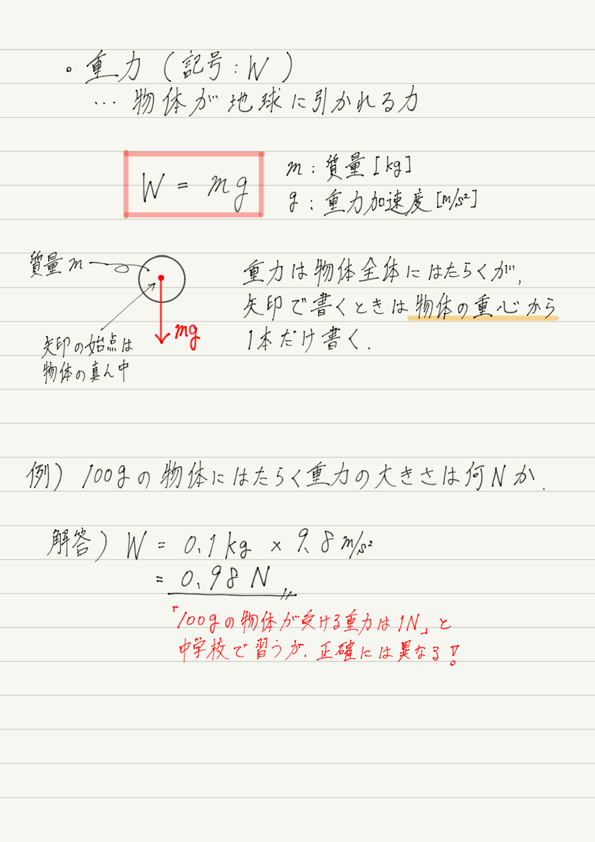 ・重力（記号：W）
… 物体が地球に引かれる力
W = mg
m：質量[kg]
g：重力加速度[m/s²]
質量m
mg
矢印の始点は
物体の真ん中
重力は物体全体にはたらくが，
矢印で書くときは物体の重心から
1本だけ書く．
例）100gの物体にはたらく重力の大きさは何Nか．
解答）W = 0.1kg × 9.8m/s²
= 0.98N
「100gの物体が受ける重力は1N」と
中学校で習うが，正確には異なる！